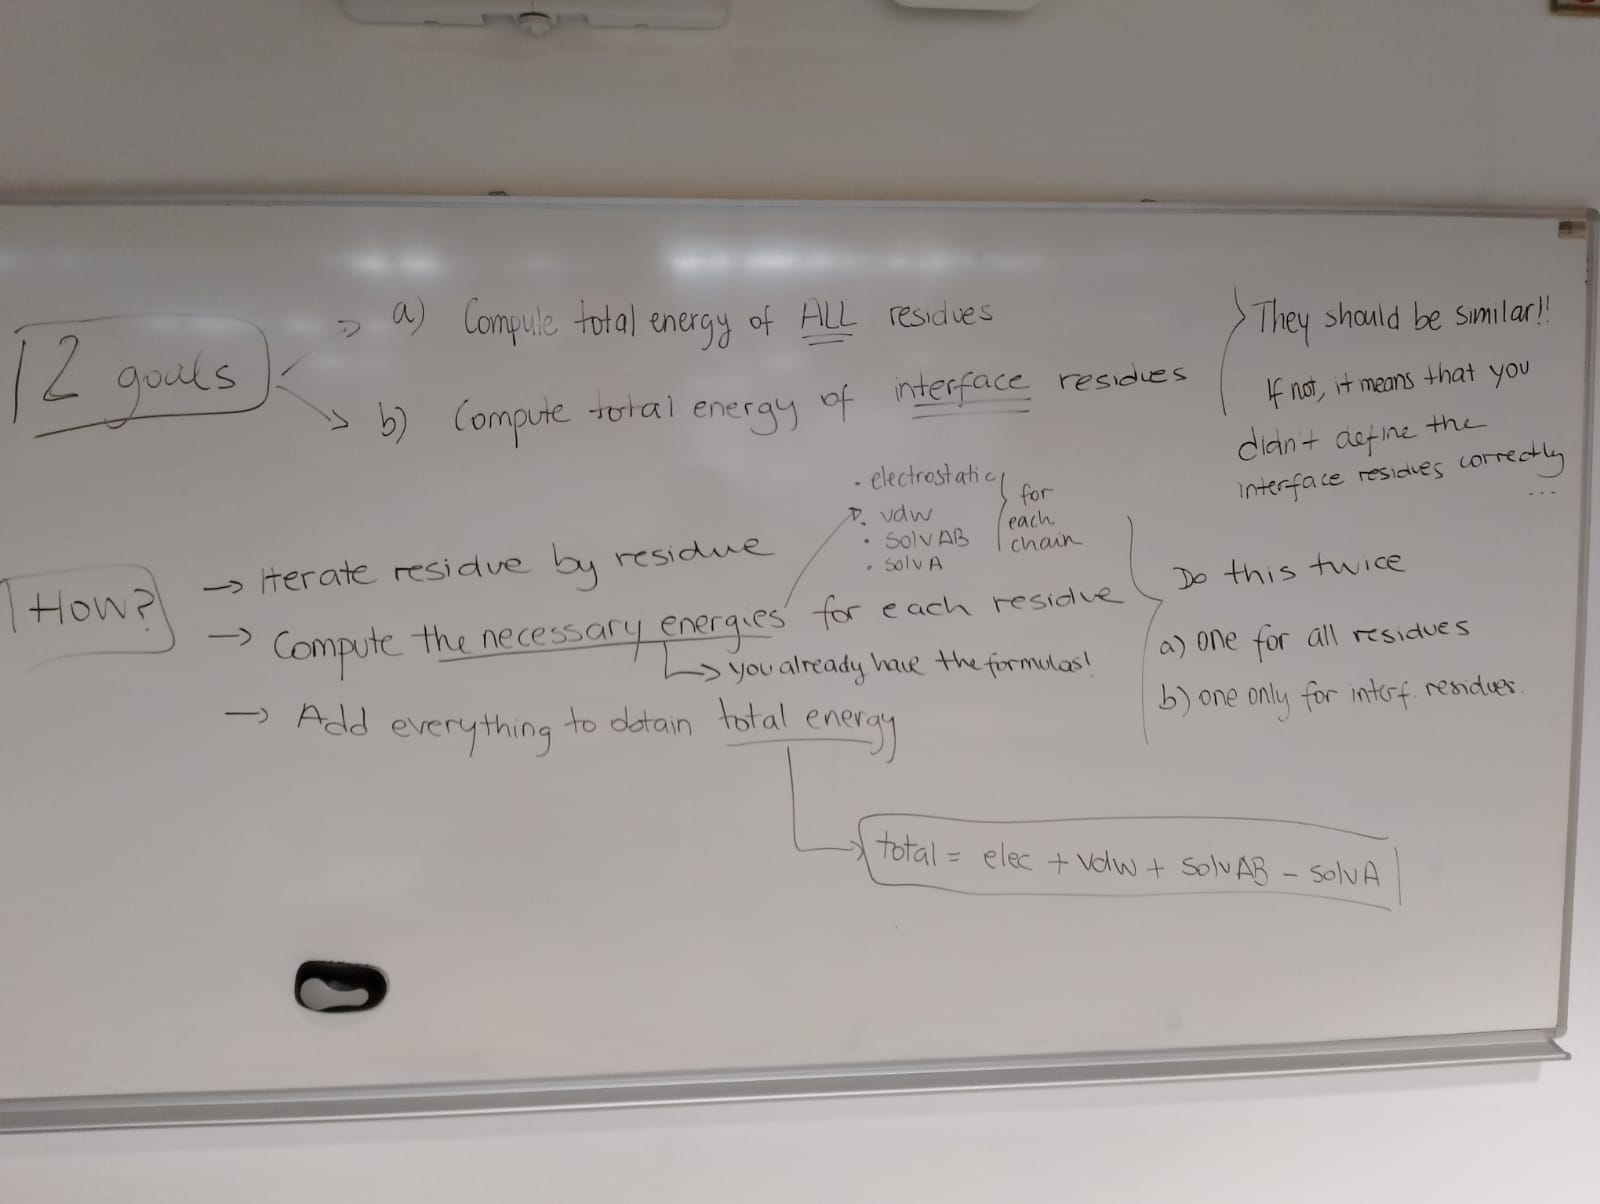 2 goals
a) Compute total energy of ALL residues
b) Compute total energy of interface residues
They should be similar!!
If not, it means that you
didn't define the
interface residues correctly
...
How?
→ Iterate residue by residue
→ Compute the necessary energies for each residue
↳ you already have the formulas!
→ Add everything to obtain total energy
· electrostatic
· vdw
· solvAB
· solvA
for
each
chain
Do this twice
a) one for all residues
b) one only for interf. residues.
total = elec + vdw + solvAB - solvA